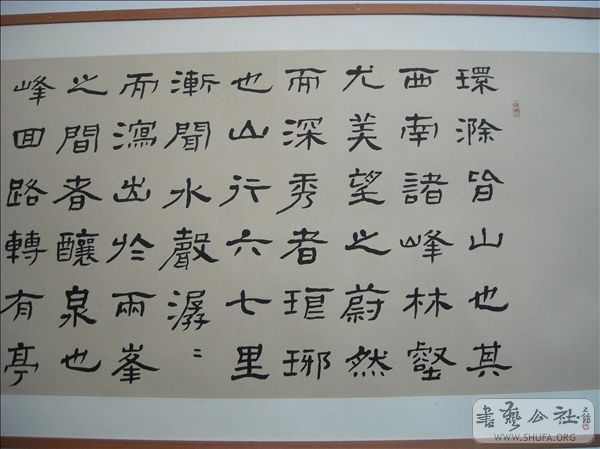 環滁皆山也其
西南諸峰林壑
尤美望之蔚然
而深秀者琅琊
也山行六七里
漸聞水聲潺〻
而瀉出於兩峯
之間者釀泉也
峰回路轉有亭
書藝公社
WWW.SHUFA.ORG